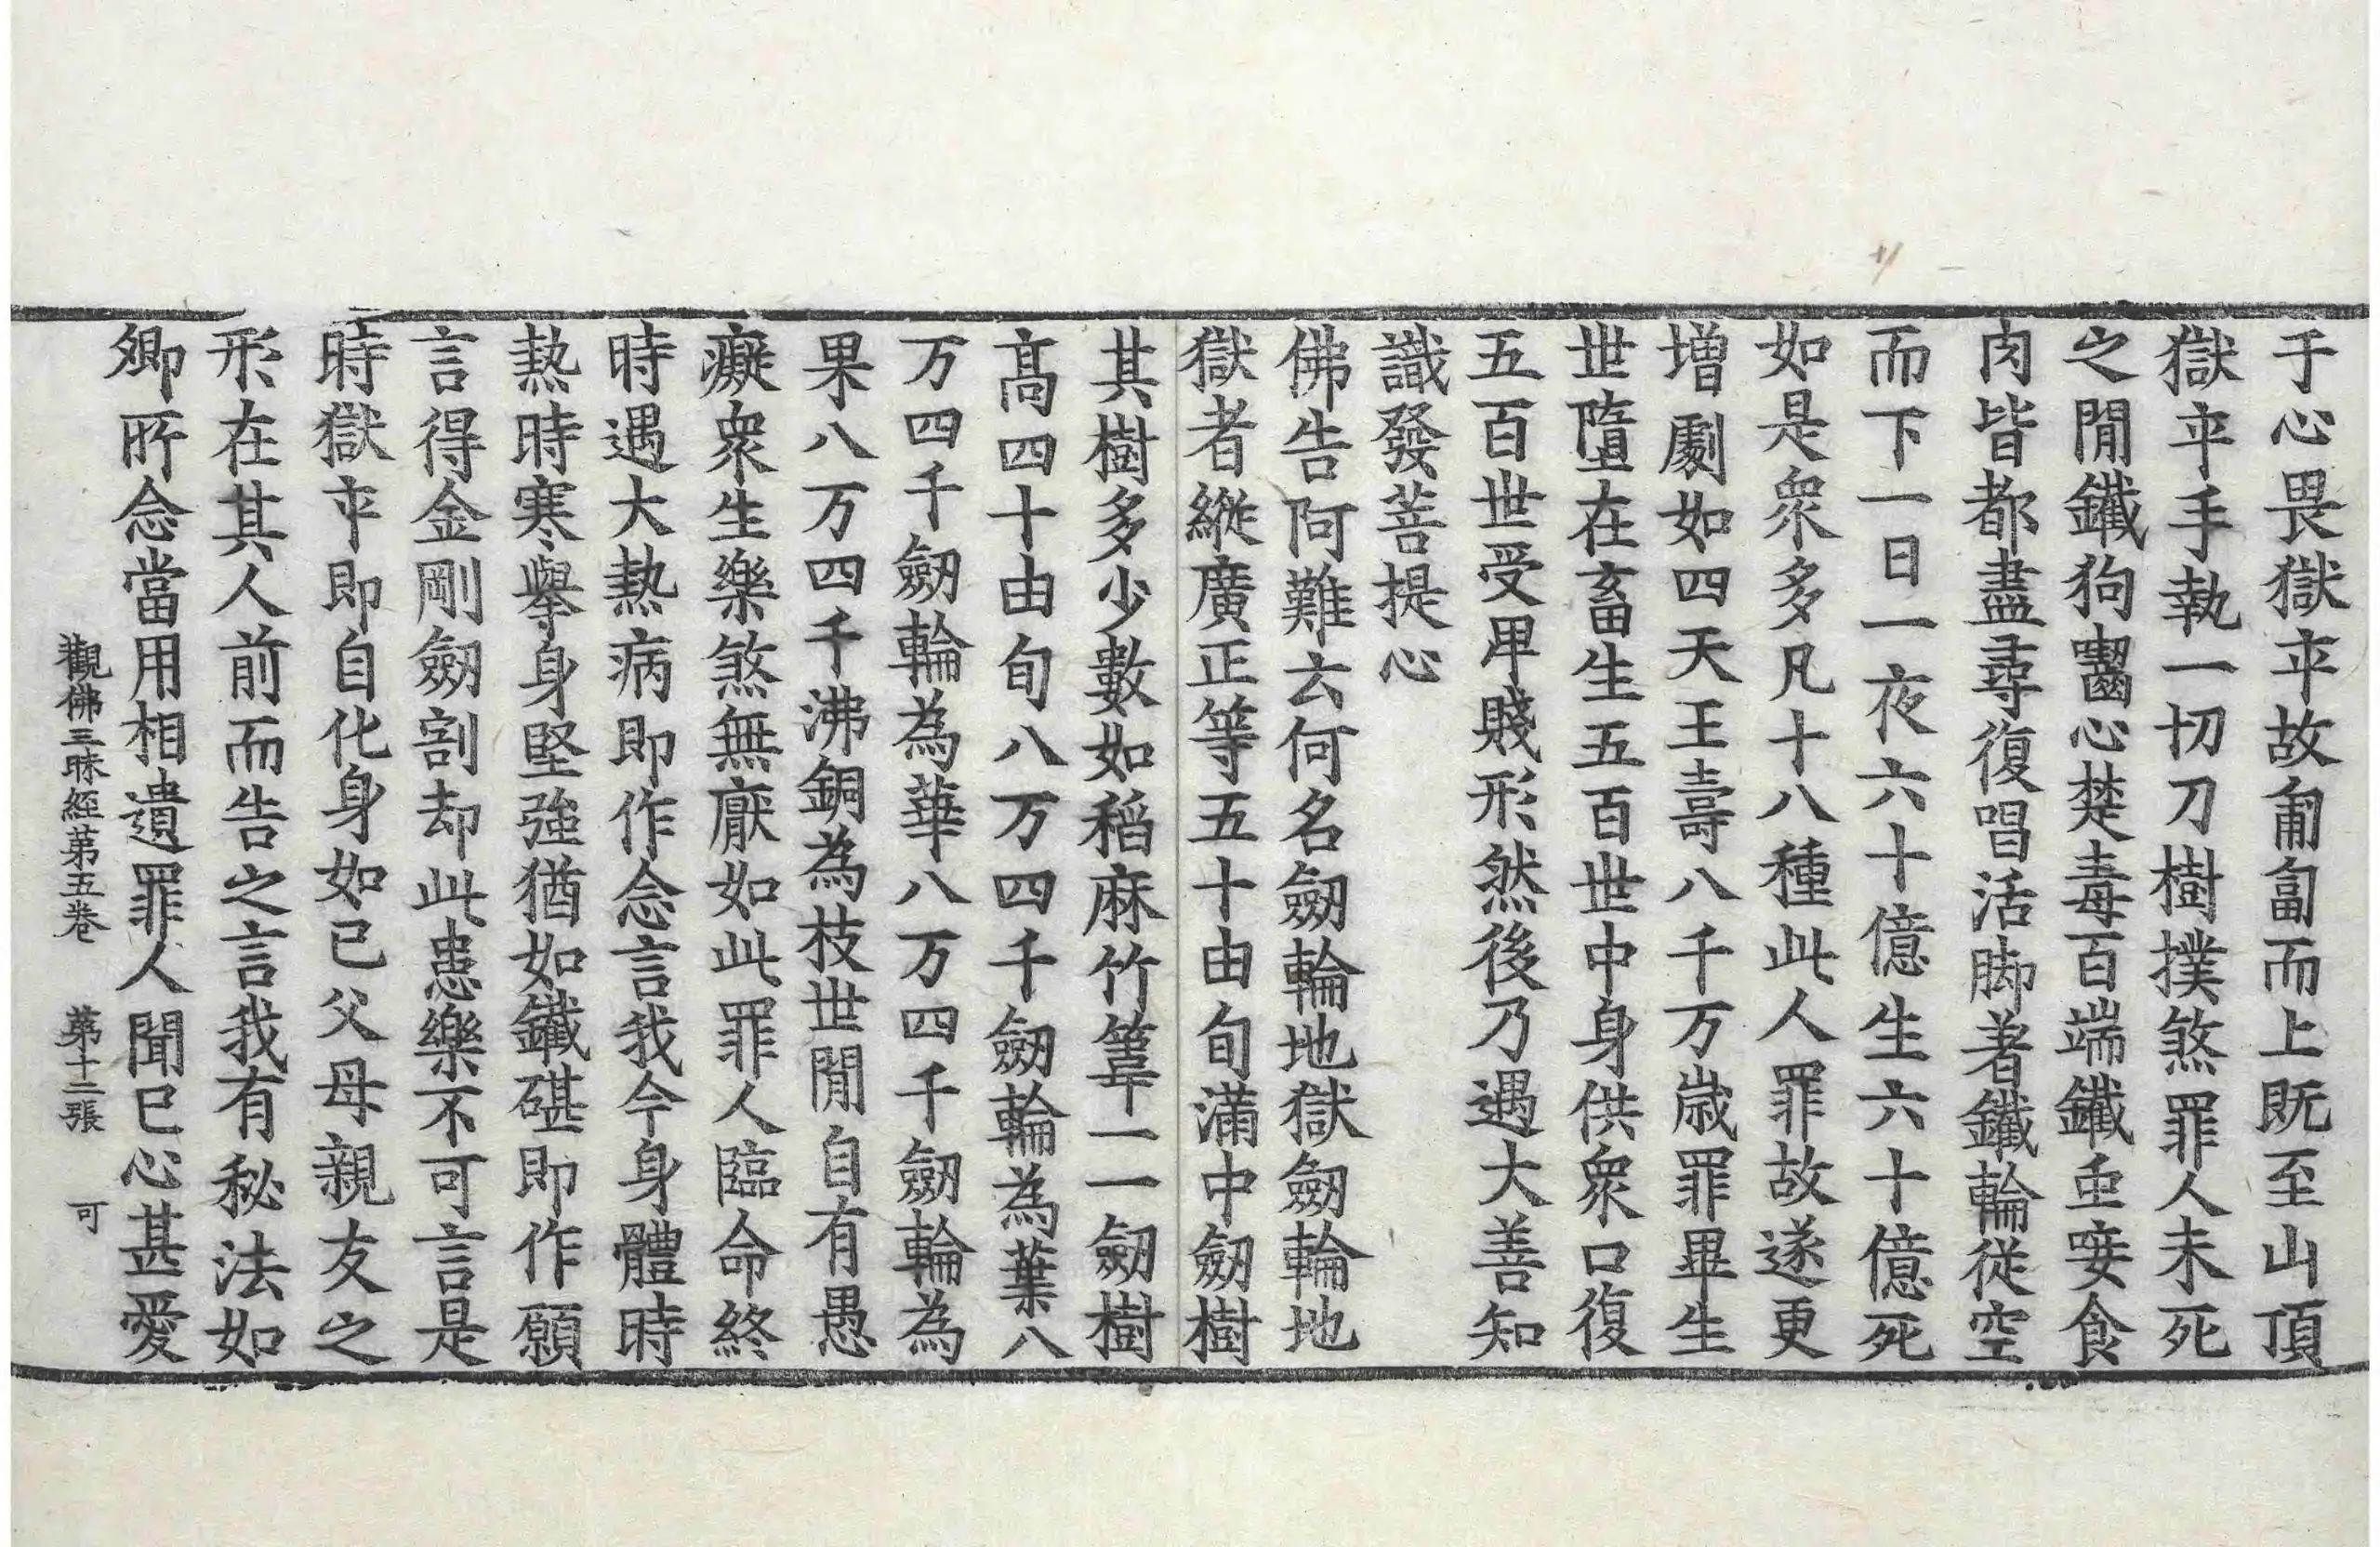 于心畏獄卒故匍匐而上既至山頂
獄卒手執一切刀樹撲煞罪人未死
之閒鐵狗齧心楚毒百端鐵虫唼食
肉皆都盡尋復唱活脚著鐵輪從空
而下一日一夜六十億生六十億死
如是衆多凡十八種此人罪故遂更
增劇如四天王壽八千万歲罪畢生
世墮在畜生五百世中身供衆口復
五百世受卑賤形然後乃遇大善知
識發菩提心
佛告阿難云何名劒輪地獄劒輪地
獄者縱廣正等五十由旬滿中劒樹
其樹多少數如稻麻竹葦一一劒樹
髙四十由旬八万四千劒輪為葉八
万四千劒輪為華八万四千劒輪為
果八万四千沸銅為枝世閒自有愚
癡衆生樂煞無厭如此罪人臨命終
時遇大熱病即作念言我今身體時
熱時寒舉身堅強猶如鐵碪即作願
言得金剛劒割却此患樂不可言是
時獄卒即自化身如己父母親友之
形在其人前而告之言我有秘法如
卿所念當用相遺罪人聞已心甚愛
觀佛三昧經第五卷　第十二張　可